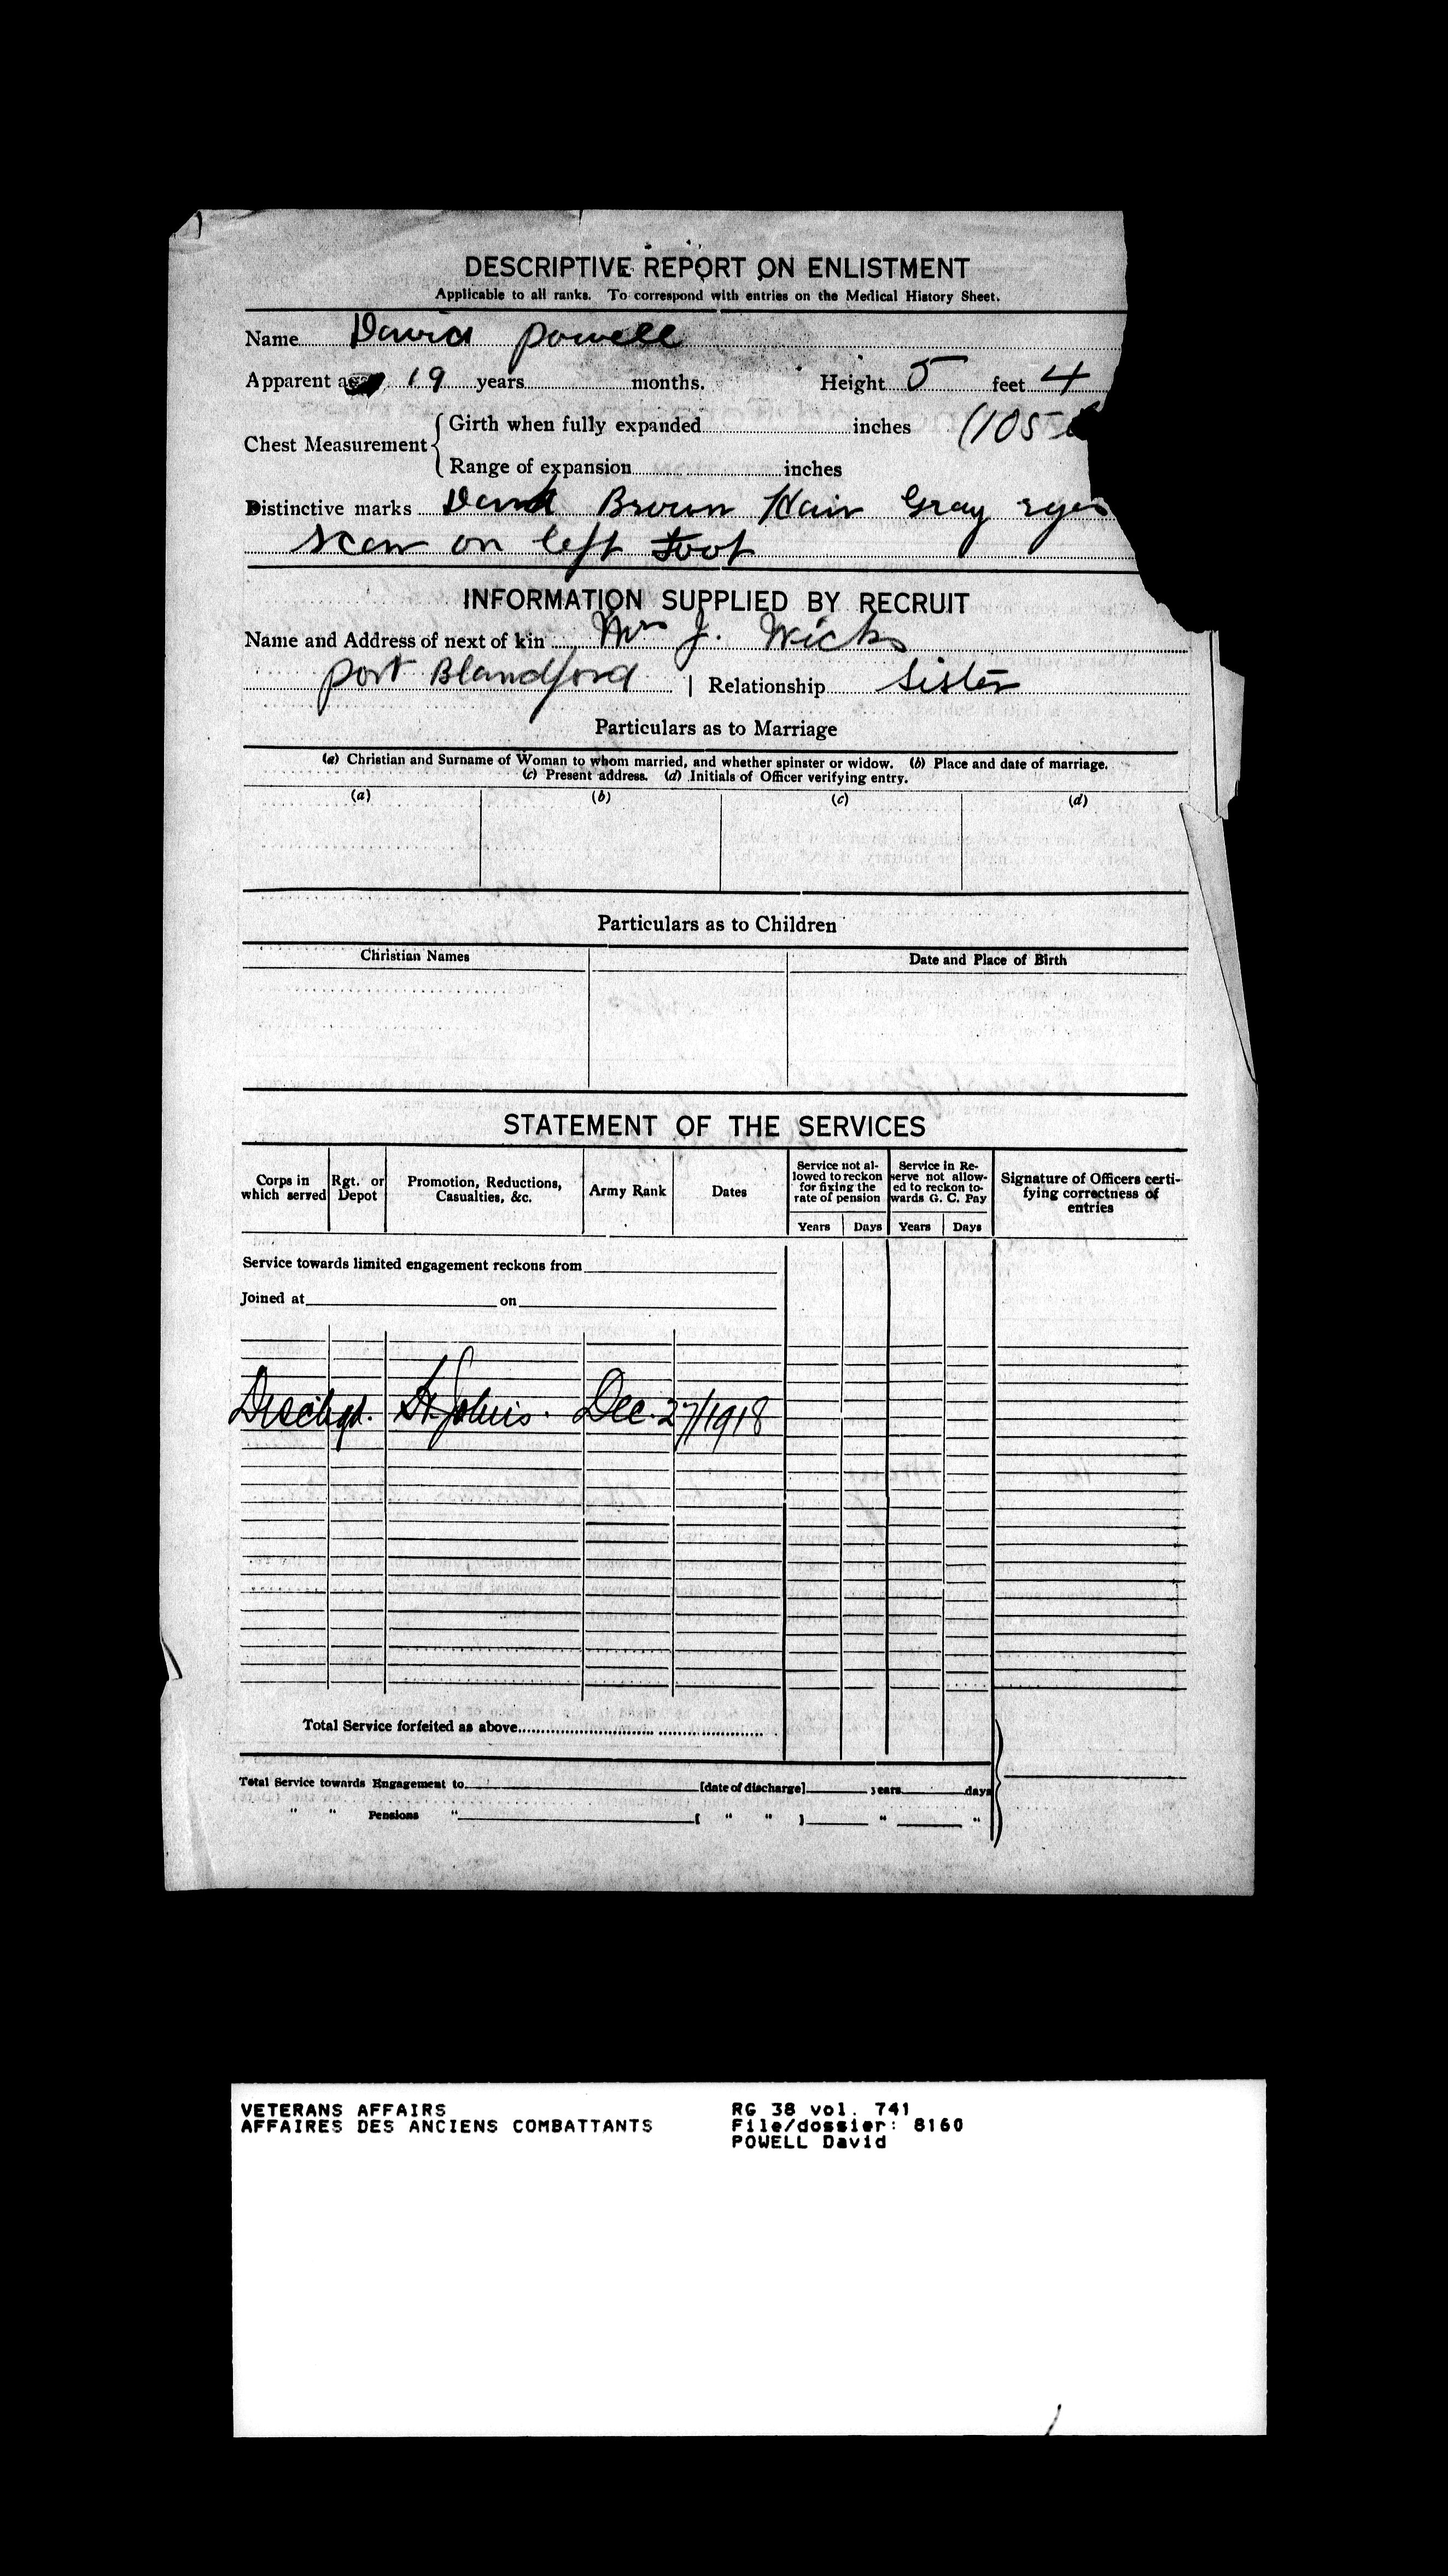 DESCRIPTIVE REPORT ON ENLISTMENT
Applicable to all ranks. To correspond with entries on the Medical History Sheet.
Name David Powell
Apparent age 19 years months. Height 5 feet 4
Chest Measurement { Girth when fully expanded inches (105
Range of expansion inches
Distinctive marks Dark Brown Hair Gray eyes
scar on left foot
INFORMATION SUPPLIED BY RECRUIT
Name and Address of next of kin Mrs J. Wicks
Port Blandford | Relationship Sister
Particulars as to Marriage
(a) Christian and Surname of Woman to whom married, and whether spinster or widow. (b) Place and date of marriage.
(c) Present address. (d) Initials of Officer verifying entry.
(a) (b) (c) (d)
Particulars as to Children
Christian Names Date and Place of Birth
STATEMENT OF THE SERVICES
Corps in which served Rgt. or Depot Promotion, Reductions, Casualties, &c. Army Rank Dates Service not allowed to reckon for fixing the rate of pension Service in Reserve not allowed to reckon towards G. C. Pay Signature of Officers certifying correctness of entries
Years Days Years Days
Service towards limited engagement reckons from
Joined at on
Dischgd. St. John's. Dec. 27/1918
Total Service forfeited as above
Total Service towards Engagement to [date of discharge] years days
" " Pensions " [ " " ] " "
VETERANS AFFAIRS RG 38 vol. 741
AFFAIRES DES ANCIENS COMBATTANTS File/dossier: 8160
POWELL David